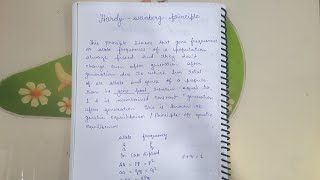 Hardy - wenberg principle
This principle states that gene frequency
or allele frequency of a population
always fixed and they don't
change even after generation after
generation due to which sum total
of all allele and genes of a popula-
tion is gene pool remain equal to
1 & is maintained constant generation
after generation. This is known as
genetic equilibrium / Principle of genetic
equilibrium
allele frequency
A p
a q
In diploid
AA = PP = P²
aa = qq = q²
P+q = 1